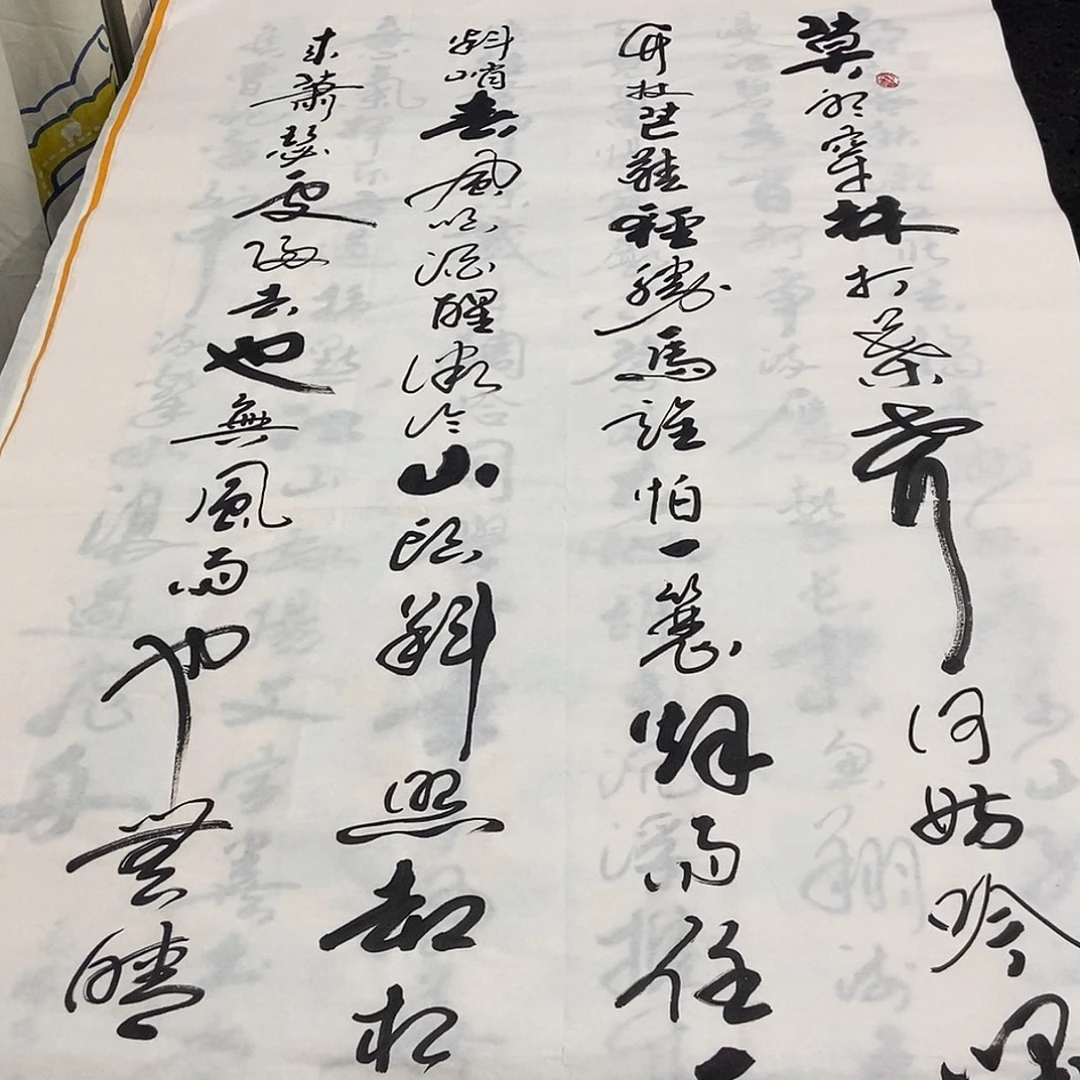 莫聽穿林打葉聲何妨吟
竹杖芒鞋輕勝馬誰怕一蓑烟雨任
料峭春風吹酒醒微冷山頭斜照却相
来蕭瑟處歸去也無風雨也無晴